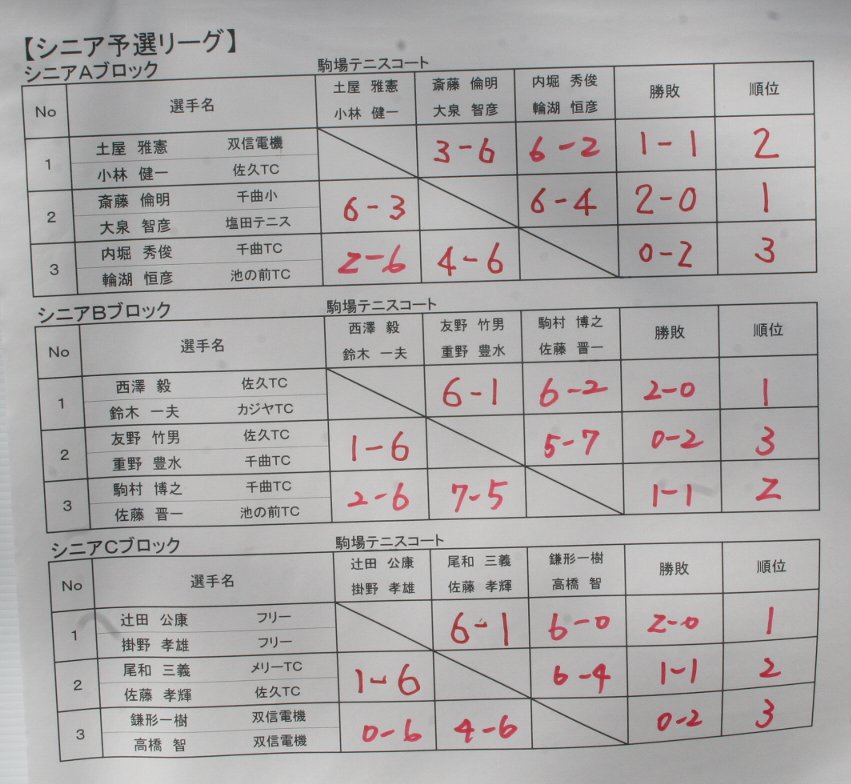 【シニア予選リーグ】
シニアAブロック 駒場テニスコート
No 選手名 土屋 雅憲 斎藤 倫明 内堀 秀俊 勝敗 順位
小林 健一 大泉 智彦 輪湖 恒彦
1 土屋 雅憲 双信電機 3-6 6-2 1-1 2
小林 健一 佐久TC
2 斎藤 倫明 千曲小 6-3 6-4 2-0 1
大泉 智彦 塩田テニス
3 内堀 秀俊 千曲TC 2-6 4-6 0-2 3
輪湖 恒彦 池の前TC
シニアBブロック 駒場テニスコート
No 選手名 西澤 毅 友野 竹男 駒村 博之 勝敗 順位
鈴木 一夫 重野 豊水 佐藤 晋一
1 西澤 毅 佐久TC 6-1 6-2 2-0 1
鈴木 一夫 カジヤTC
2 友野 竹男 佐久TC 1-6 5-7 0-2 3
重野 豊水 千曲TC
3 駒村 博之 千曲TC 2-6 7-5 1-1 2
佐藤 晋一 池の前TC
シニアCブロック 駒場テニスコート
No 選手名 辻田 公康 尾和 三義 鎌形一樹 勝敗 順位
掛野 孝雄 佐藤 孝輝 高橋 智
1 辻田 公康 フリー 6-1 6-0 2-0 1
掛野 孝雄 フリー
2 尾和 三義 メリーTC 1-6 6-4 1-1 2
佐藤 孝輝 佐久TC
3 鎌形一樹 双信電機 0-6 4-6 0-2 3
高橋 智 双信電機